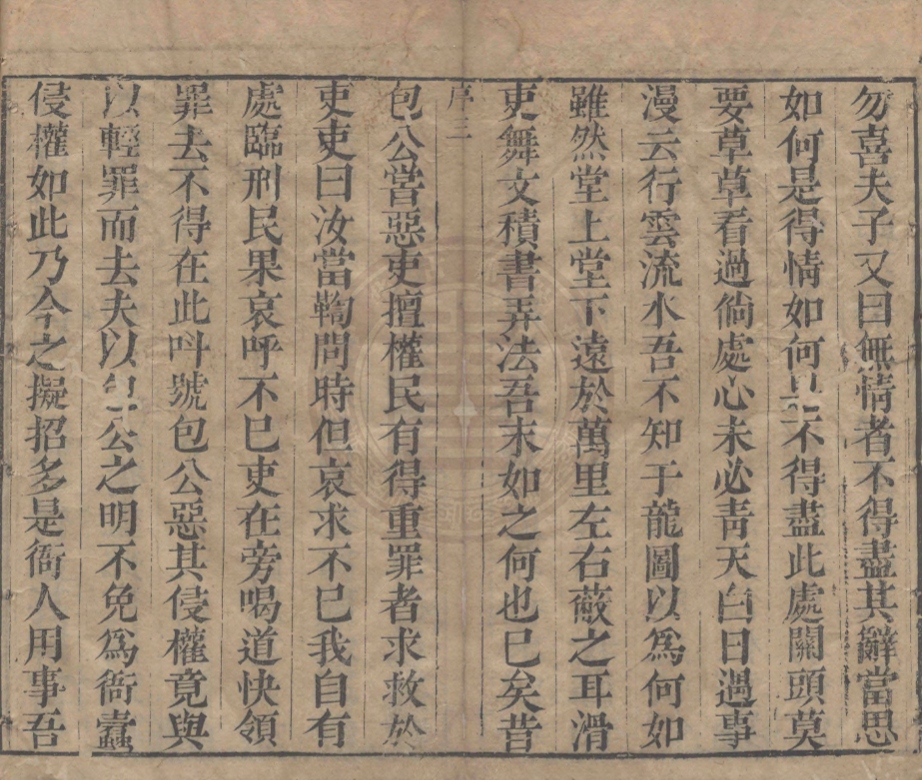 勿喜夫子又曰無情者不得盡其辭當思
如何是得情如何是不得盡此處關頭莫
要草草看過倘處心未必青天白日過事
漫云行雲流水吾不知于龍圖以為何如
雖然堂上堂下遠於萬里左右蔽之耳滑
吏舞文積書弄法吾末如之何也巳矣昔
序三
包公嘗惡吏擅權民有得重罪者求救於
吏吏曰汝當鞫問時但哀求不巳我自有
處臨刑民果哀呼不巳吏在旁喝道快領
罪去不得在此呌號包公惡其侵權竟與
以輕罪而去夫以包公之明不免爲衙蠹
侵權如此乃今之擬招多是衙人用事吾